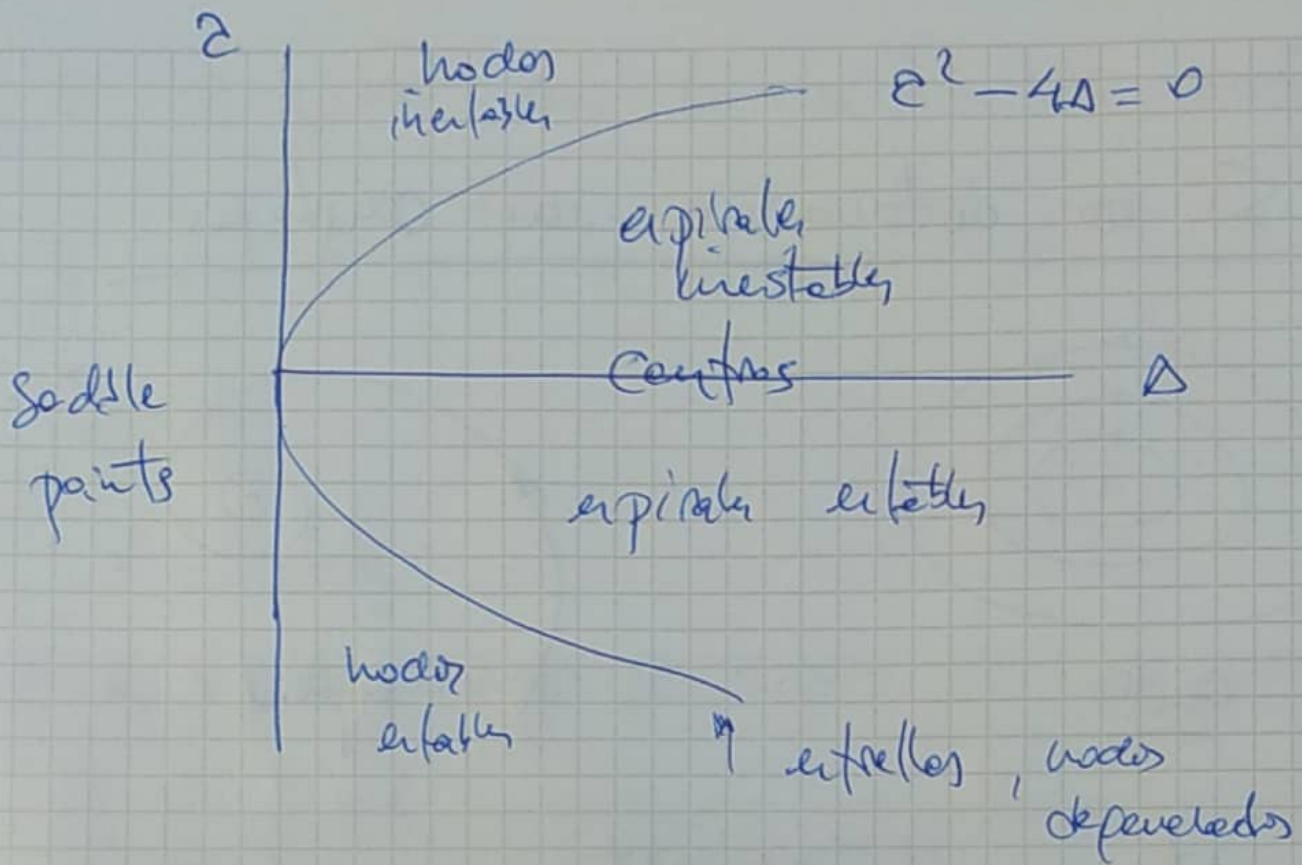 τ
nodos
inestables
τ² - 4Δ = 0
espirales
inestables
Centros
Δ
Saddle
points
espirales estables
nodos
estables
estrellas, nodos
degenerados